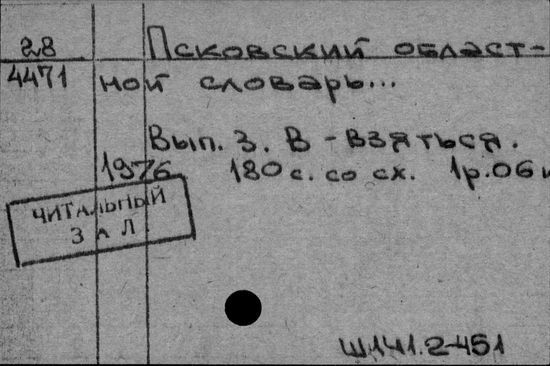 28
4471
Псковский област-
ной словарь...
Вып. 3. В - взяться.
1976 180 с. со сх. 1р.06к
ЧИТАЛЬНЫЙ
ЗАЛ
Ш141.2-451